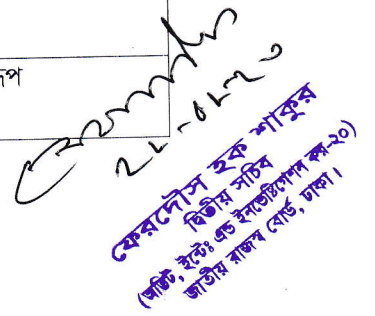 রূপ
ফেরদৌস হক শাকুর
দ্বিতীয় সচিব
(অডিট, ইন্টেঃ এন্ড ইনভেষ্টিগেশন কর-২০)
জাতীয় রাজস্ব বোর্ড, ঢাকা।